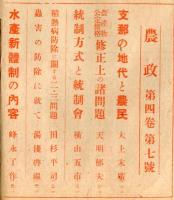 農政 第四卷 第七號
支那の地代と農民 大上末廣
農産物公定價格修正上の諸問題 天明郁夫
統制方式と統制會 橫山五市
稻熱病防除に關する二・三の問題 田杉平司
蟲害の防除に就て 湯淺啓溫
水產新體制の內容 峰永了作